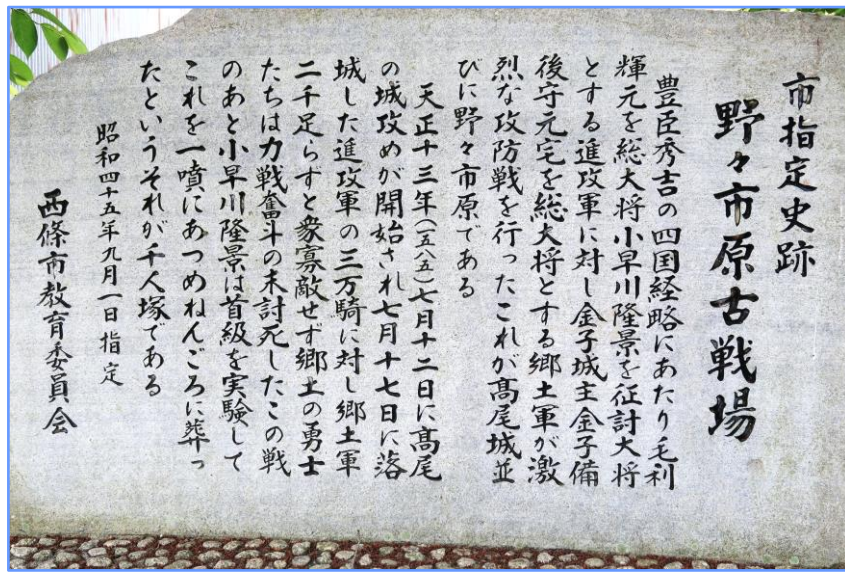 市指定史跡
野々市原古戦場
豊臣秀吉の四国経略にあたり毛利
輝元を総大将小早川隆景を征討大将
とする進攻軍に対し金子城主金子備
後守元宅を総大将とする郷土軍が激
烈な攻防戦を行ったこれが髙尾城並
びに野々市原である
天正十三年(一五八五)七月十二日に髙尾
の城攻めが開始され七月十七日に落
城した進攻軍の三万騎に対し郷土軍
二千足らずと衆寡敵せず郷土の勇士
たちは力戦奮斗の末討死したこの戦
のあと小早川隆景は首級を実験して
これを一墳にあつめねんごろに葬っ
たというそれが千人塚である
昭和四十五年九月一日指定
西條市教育委員会